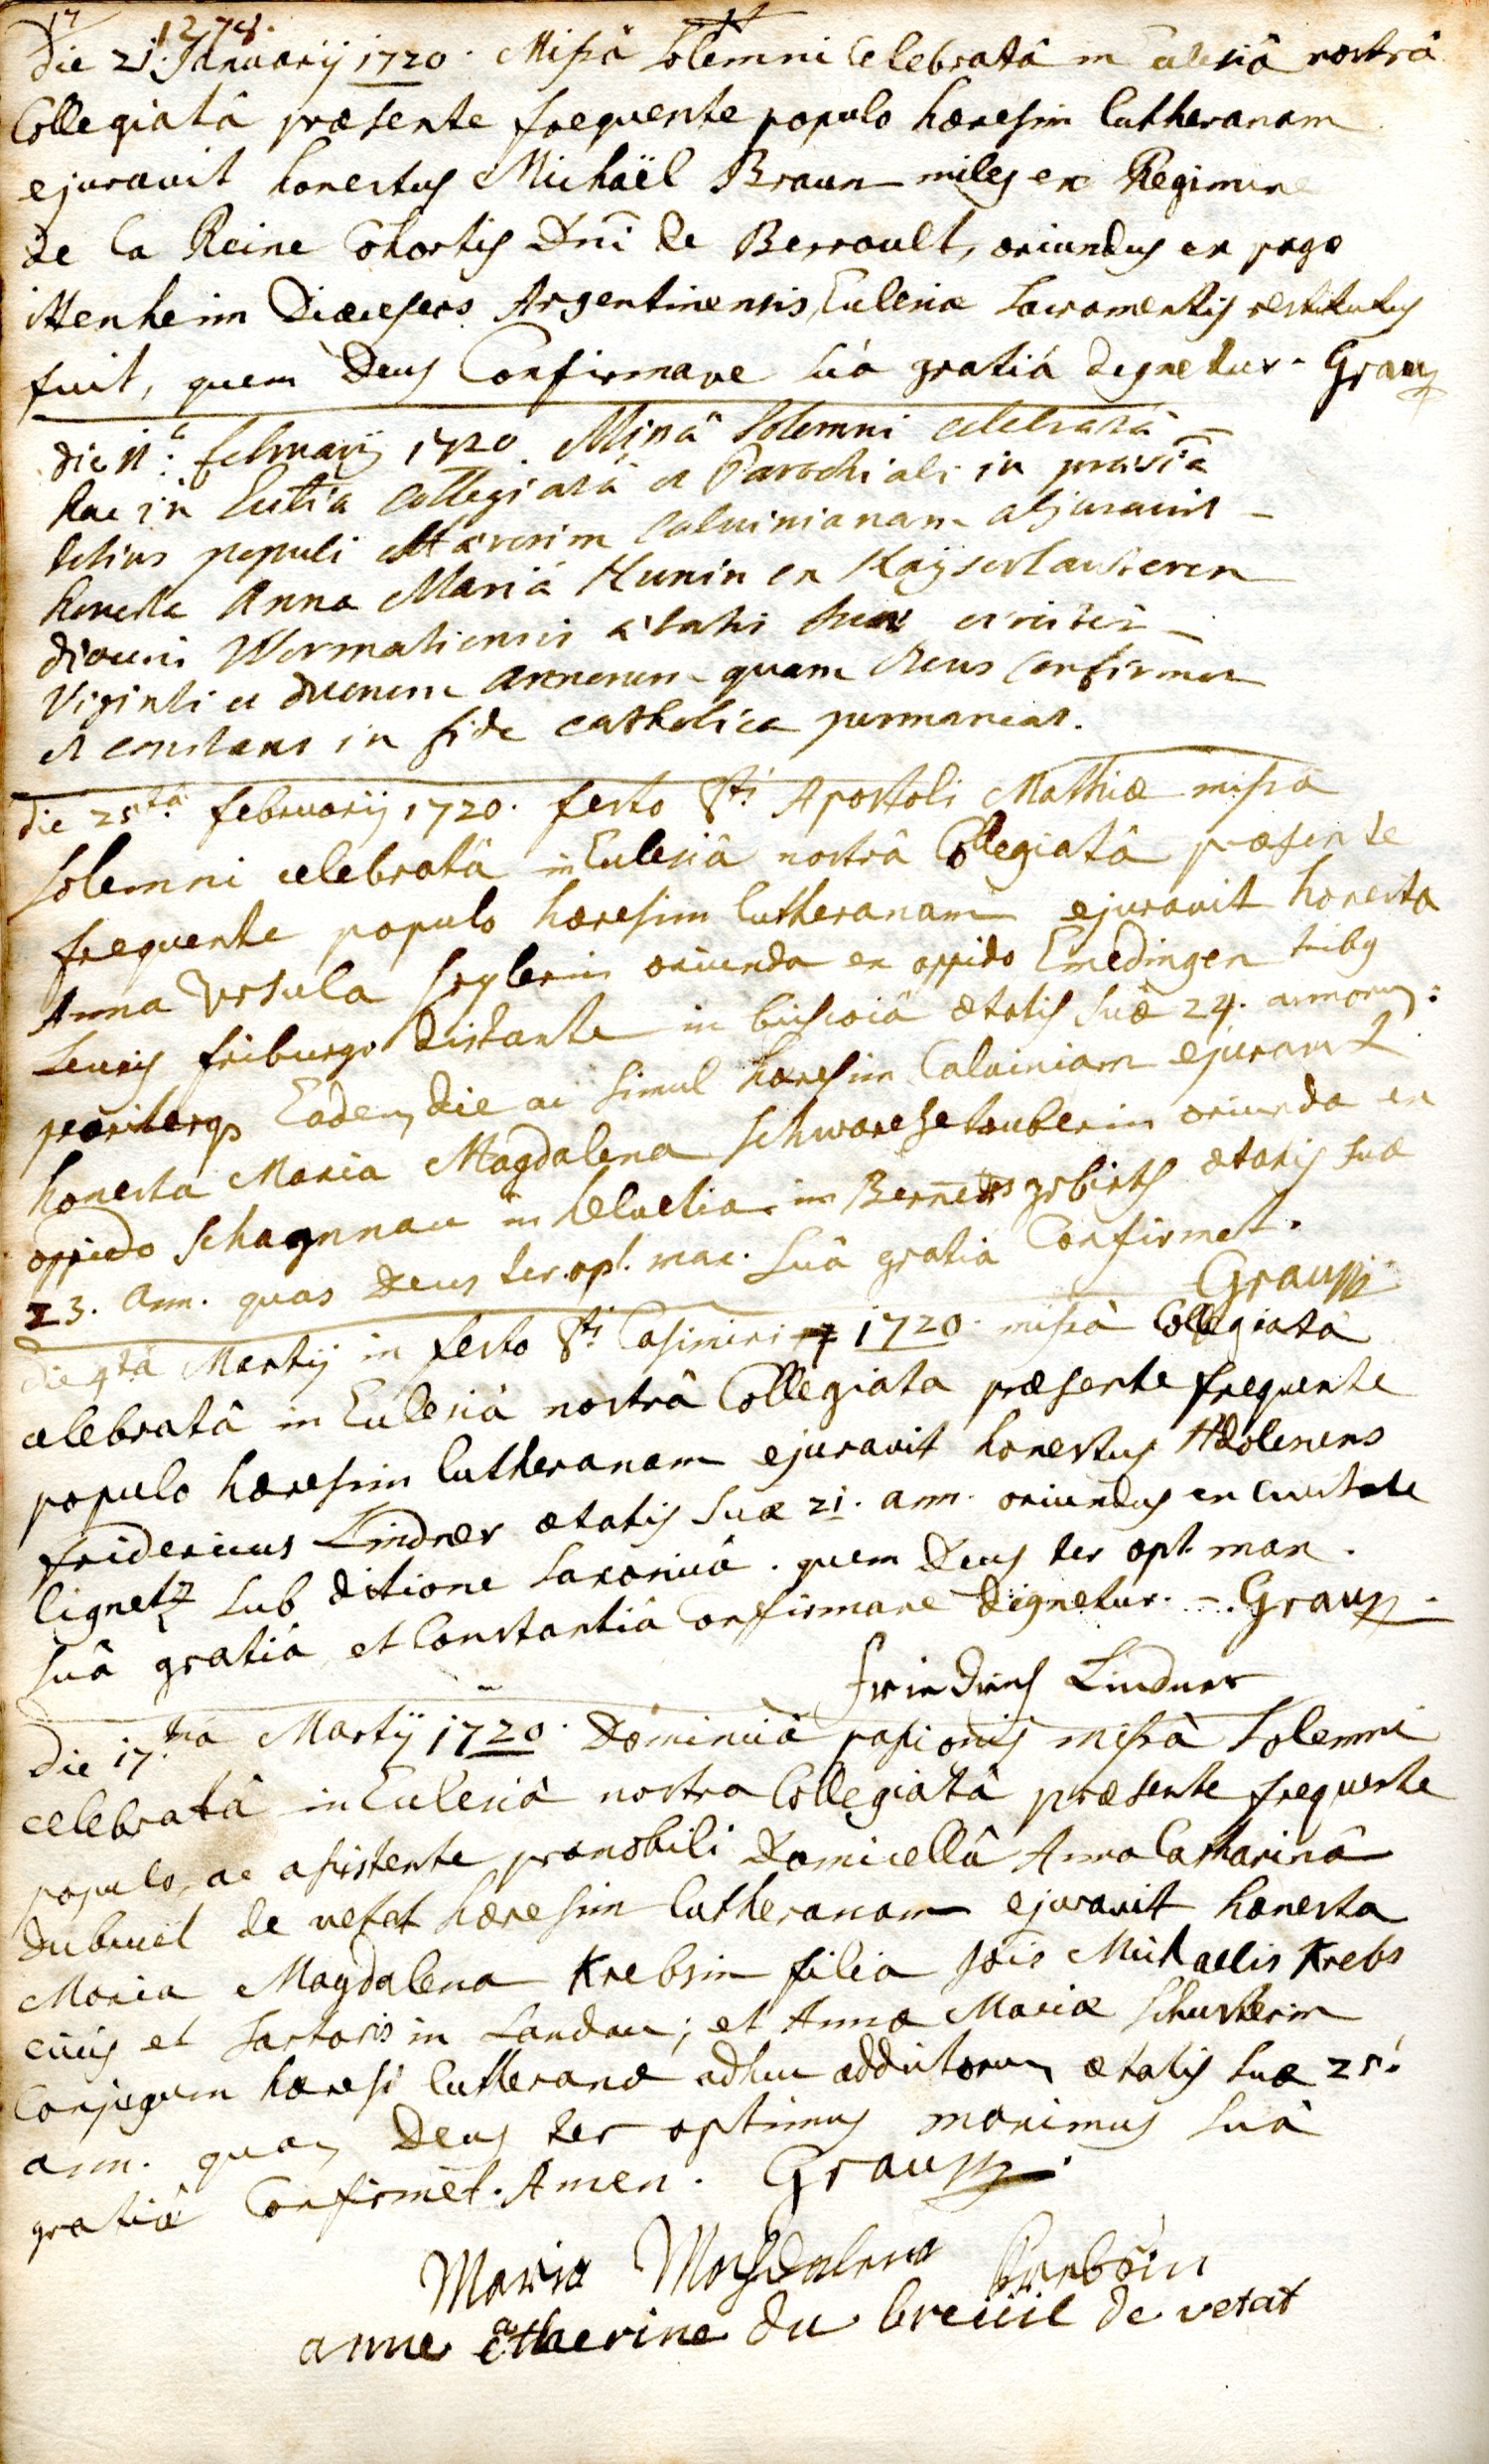 17 1274.
Die 21. Januarij 1720. Missâ solemni celebratâ in Ecclesiâ nostrâ
Collegiatâ præsente frequente populo hæresim lutheranam
ejuravit honestus Michaël Braun miles ex Regimine
de la Reine Cohortis Dni de Berroult, oriundus ex pago
ittenheim Diœceseos Argentinensis, Ecclesiæ sacramentis restitutus
fuit, quem Deus Confirmare suâ gratiâ dignetur. Graus
die 11a februarij 1720 Missâ solemni celebratâ
hac in Ecclia Collegiatâ et Parochiali in præsiâ
totius populi Hæresim calvinianam abjuravit
honesta Anna Mariá Hunin ex Kayserlauteren
diœcesis Wormatiensis ætatis suæ circiter
Viginti et duorum annorum quam Deus confirmet
et constans in fide catholica permaneat.
Die 25ta februarij 1720. festo Sti Apostoli Mathiæ missa
solemni celebratâ in Ecclesiâ nostrâ Collegiatâ præsente
frequente populo hæresim lutheranam ejuravit honesta
Anna Vrsula oriunda ex oppido Emedingen tribus
Leucis friburgo distante in brisgoiâ ætatis suæ 24. annorum:
pariterque Eadem die ac simul hæresim Calviniam ejuravit
honesta Maria Magdalena oriunda ex
oppido Schagnnau in helvetia im ætatis suæ
23. Ann. quas Deus ter. opt. max. suâ gratiâ Confirmet.
Graus
Die 4tâ Martij in festo Sti Casimiri 1720. missâ Collegiatâ
celebratâ in Ecclesiâ nostrâ Collegiata præsente frequente
populo hæresim lutheranam ejuravit honestus Adolescens
fridericus Lindner ætatis suæ 21. ann. oriundus ex civitate
lignetz sub ditione saxonicâ. quem Deus ter opt. max.
suâ gratiâ et Constantiâ Confirmare dignetur. - Graus
friedrich Lindner
Die 17ma Martij 1720. Dominicâ passionis missâ solemni
celebratâ in Ecclesiâ nostra Collegiatâ præsente frequente
populo, ac assistente prænobili Domicellâ Anna Catharinâ
Dubruel de vetat hæresim lutheranam ejuravit honesta
Maria Magdalena Krebsin filia Jois Michaelis Krebs
civis et sartoris in Landau; et Annæ Mariæ Schusterin
Conjugum hæresi lutheranæ adhuc addictorum ætatis suæ 25.
ann. quam Deus ter optimus maximus suâ
gratiâ Confirmet. Amen. Graus
Maria Magdalena Krebsin
anne catherine du breüil de vetat